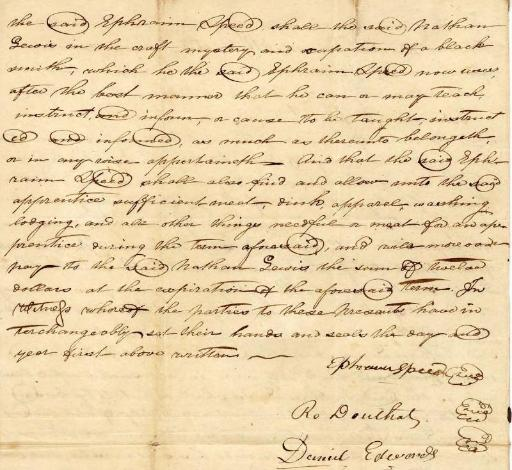 the said Ephraim Speed shall the said Nathan
Lewis in the craft mystery and occupation of a black
smith, which he the said Ephraim Speed now uses
after the best manner that he can or may teach,
instruct, and inform, or cause to be taught, instruct
ed and informed, as much as thereunto belongeth,
or in any wise appertaineth - And that the said Eph-
raim Speed shall also find and allow unto the said
apprentice sufficient meat, drink apparel, washing
lodging, and all other things needful or meet for an ap-
prentice during the term aforesaid, and will moreover
pay to the said Nathan Lewis the sum of twelve
dollars at the expiration of the aforesaid term. In
Witness whereof the parties to these Presents have in
terchangeably set their hands and seals the day and
year first above written -
Ephraim Speed
Ro Douthat
Daniel Edwards